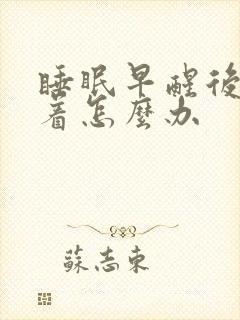 睡眠早醒後
着怎麼办
蘇志東